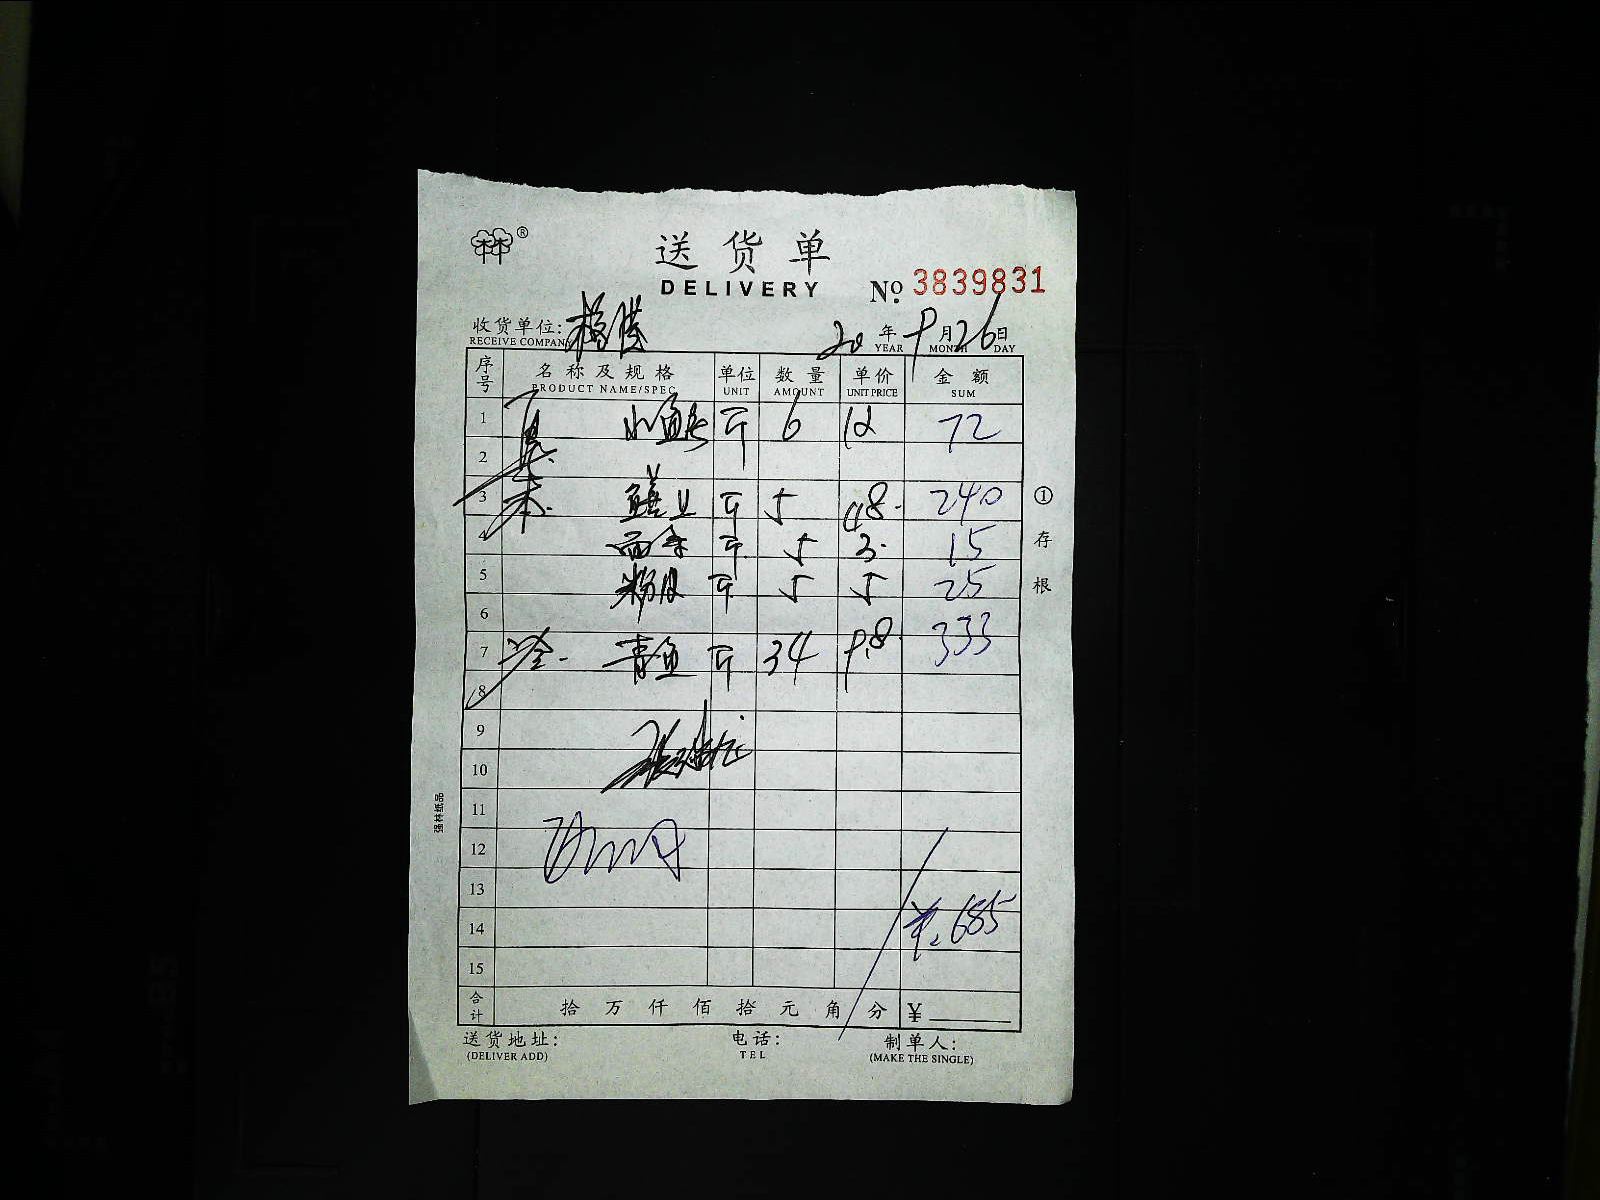 林林®
送货单
DELIVERY
№ 3839831
收货单位:
RECEIVE COMPANY
20 年 9 月 26 日
YEAR MONTH DAY
序号 名称及规格 单位 数量 单价 金额
PRODUCT NAME/SPEC UNIT AMOUNT UNIT PRICE SUM
1 小鱼 斤 6 12 72
2
3 斤 5 48. 240
4 斤 5 3. 15
5 粉皮 斤 5 5 25
6
7 青鱼 斤 34 9.8 333
8
9
10
11
12
13
14 ¥. 685
15
合计 拾 万 仟 佰 拾 元 角 分 ¥
送货地址: 电话: 制单人:
(DELIVER ADD) TEL (MAKE THE SINGLE)
① 存根
强林纸品